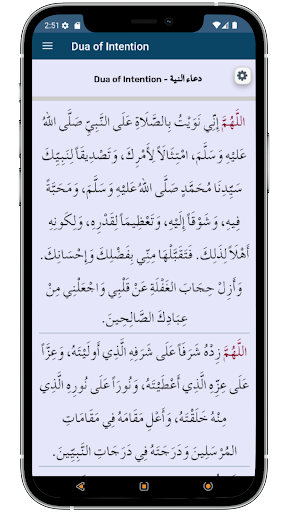 2:51
Dua of Intention
Dua of Intention - دعاء النية
اللَّهُمَّ إِنِّي نَوَيْتُ بِالصَّلَاةِ عَلَى النَّبِيِّ صَلَّى اللهُ
عَلَيْهِ وَسَلَّمَ، امْتِثَالاً لِأَمْرِكَ، وَتَصْدِيقاً لِنَبِيِّكَ
سَيِّدِنَا مُحَمَّدٍ صَلَّى اللهُ عَلَيْهِ وَسَلَّمَ، وَمَحَبَّةً
فِيهِ، وَشَوْقاً إِلَيْهِ، وَتَعْظِيماً لِقَدْرِهِ، وَلِكَوْنِهِ
أَهْلاً لِذَلِكَ. فَتَقَبَّلْهَا مِنِّي بِفَضْلِكَ وَإِحْسَانِكَ.
وَأَزِلْ حِجَابَ الغَفْلَةِ عَنْ قَلْبِي وَاجْعَلْنِي مِنْ
عِبَادِكَ الصَّالِحِينَ.
اللَّهُمَّ زِدْهُ شَرَفاً عَلَى شَرَفِهِ الَّذِي أَوْلَيْتَهُ، وَعِزّاً
عَلَى عِزِّهِ الَّذِي أَعْطَيْتَهُ، وَنُوراً عَلَى نُورِهِ الَّذِي
مِنْهُ خَلَقْتَهُ، وَأَعْلِ مَقَامَهُ فِي مَقَامَاتِ
المُرْسَلِينَ وَدَرَجَتَهُ فِي دَرَجَاتِ النَّبِيِّينَ.